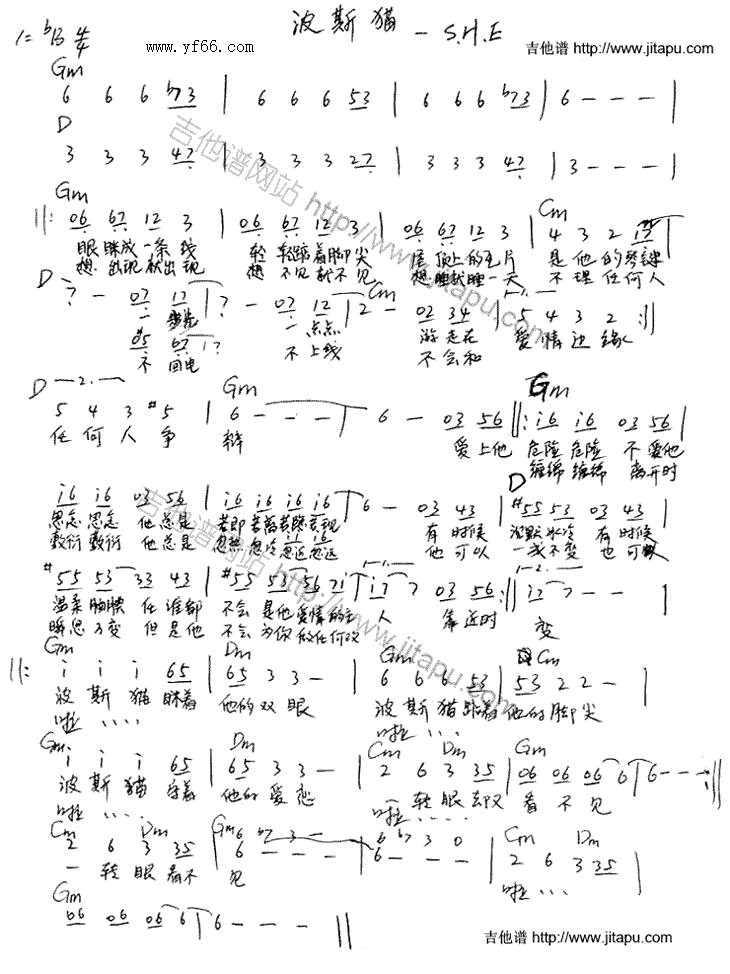 波斯猫 - S.H.E
1=♭B 4/4
www.yf66.com
吉他谱 http://www.jitapu.com
Gm
6 6 6 ♭73 | 6 6 6 53 | 6 6 6 ♭73 | 6 - - - |
D
3 3 3 47 | 3 3 3 27 | 3 3 3 47 | 3 - - - |
吉他谱网站 http://www.jitapu.com
Gm Cm
||: 06 67 12 3 | 06 67 12 3 | 06 67 12 3 | 4 3 2
眼眯成一条线 轻轻踮着脚尖 屋顶上的瓦片 是他的琴键
想出现就出现 想不见就不见 想睡就睡一天 不理任何人
D Cm 1.
- 07 12 | - 07 12 | 2 - 02 34 | 5 4 3 2 :||
一点点 游走在 爱情边缘
不回电 不上线 不会和
D 2. Gm Gm
5 4 3 #5 | 6 - - - | 6 - 03 56 ||: i6 i6 03 56 |
任何人争 辩 爱上他 危险危险 不爱他
缠绵缠绵 离开时
D
i6 i6 03 56 | i6 i6 i6 i6 | 6 - 03 43 | #55 53 03 43 |
思念思念 他总是 若即若离若隐若现 有时候 沉默冰冷 有时候
敷衍敷衍 他总是 忽热忽冷忽近忽远 他可以 一成不变 也可以
吉他谱网站 http://www.jitapu.com
1. 2.
#55 53 33 43 | #55 53 56 7i | i7 7 03 56 :|| i7 7 - - |
温柔腼腆 任谁都 不会是他爱情的主 人 靠近时 变
瞬息万变 但是他 不会为你做任何改
Gm Dm Gm Cm
||: i i i 65 | 65 3 3 - | 6 6 6 53 | 53 2 2 - |
波斯猫 眯着 他的双眼 波斯猫 踮着 他的脚尖
啦.... 啦....
Gm Dm Cm Dm Gm
i i i 65 | 65 3 3 - | 2 6 3 35 | 06 06 06 6 | 6 - - - :||
波斯猫 守着 他的爱恋 一转眼却又 看不见
啦.... 啦....
Cm Dm Gm Cm Dm
2 6 3 35 | 6 - - - | 6 - - - | 2 6 3 35 |
6 ♭7 3 - 6 ♭7 3 0
一转眼看不 见 啦...
Gm
06 06 06 6 | 6 - - - ||
吉他谱 http://www.jitapu.com